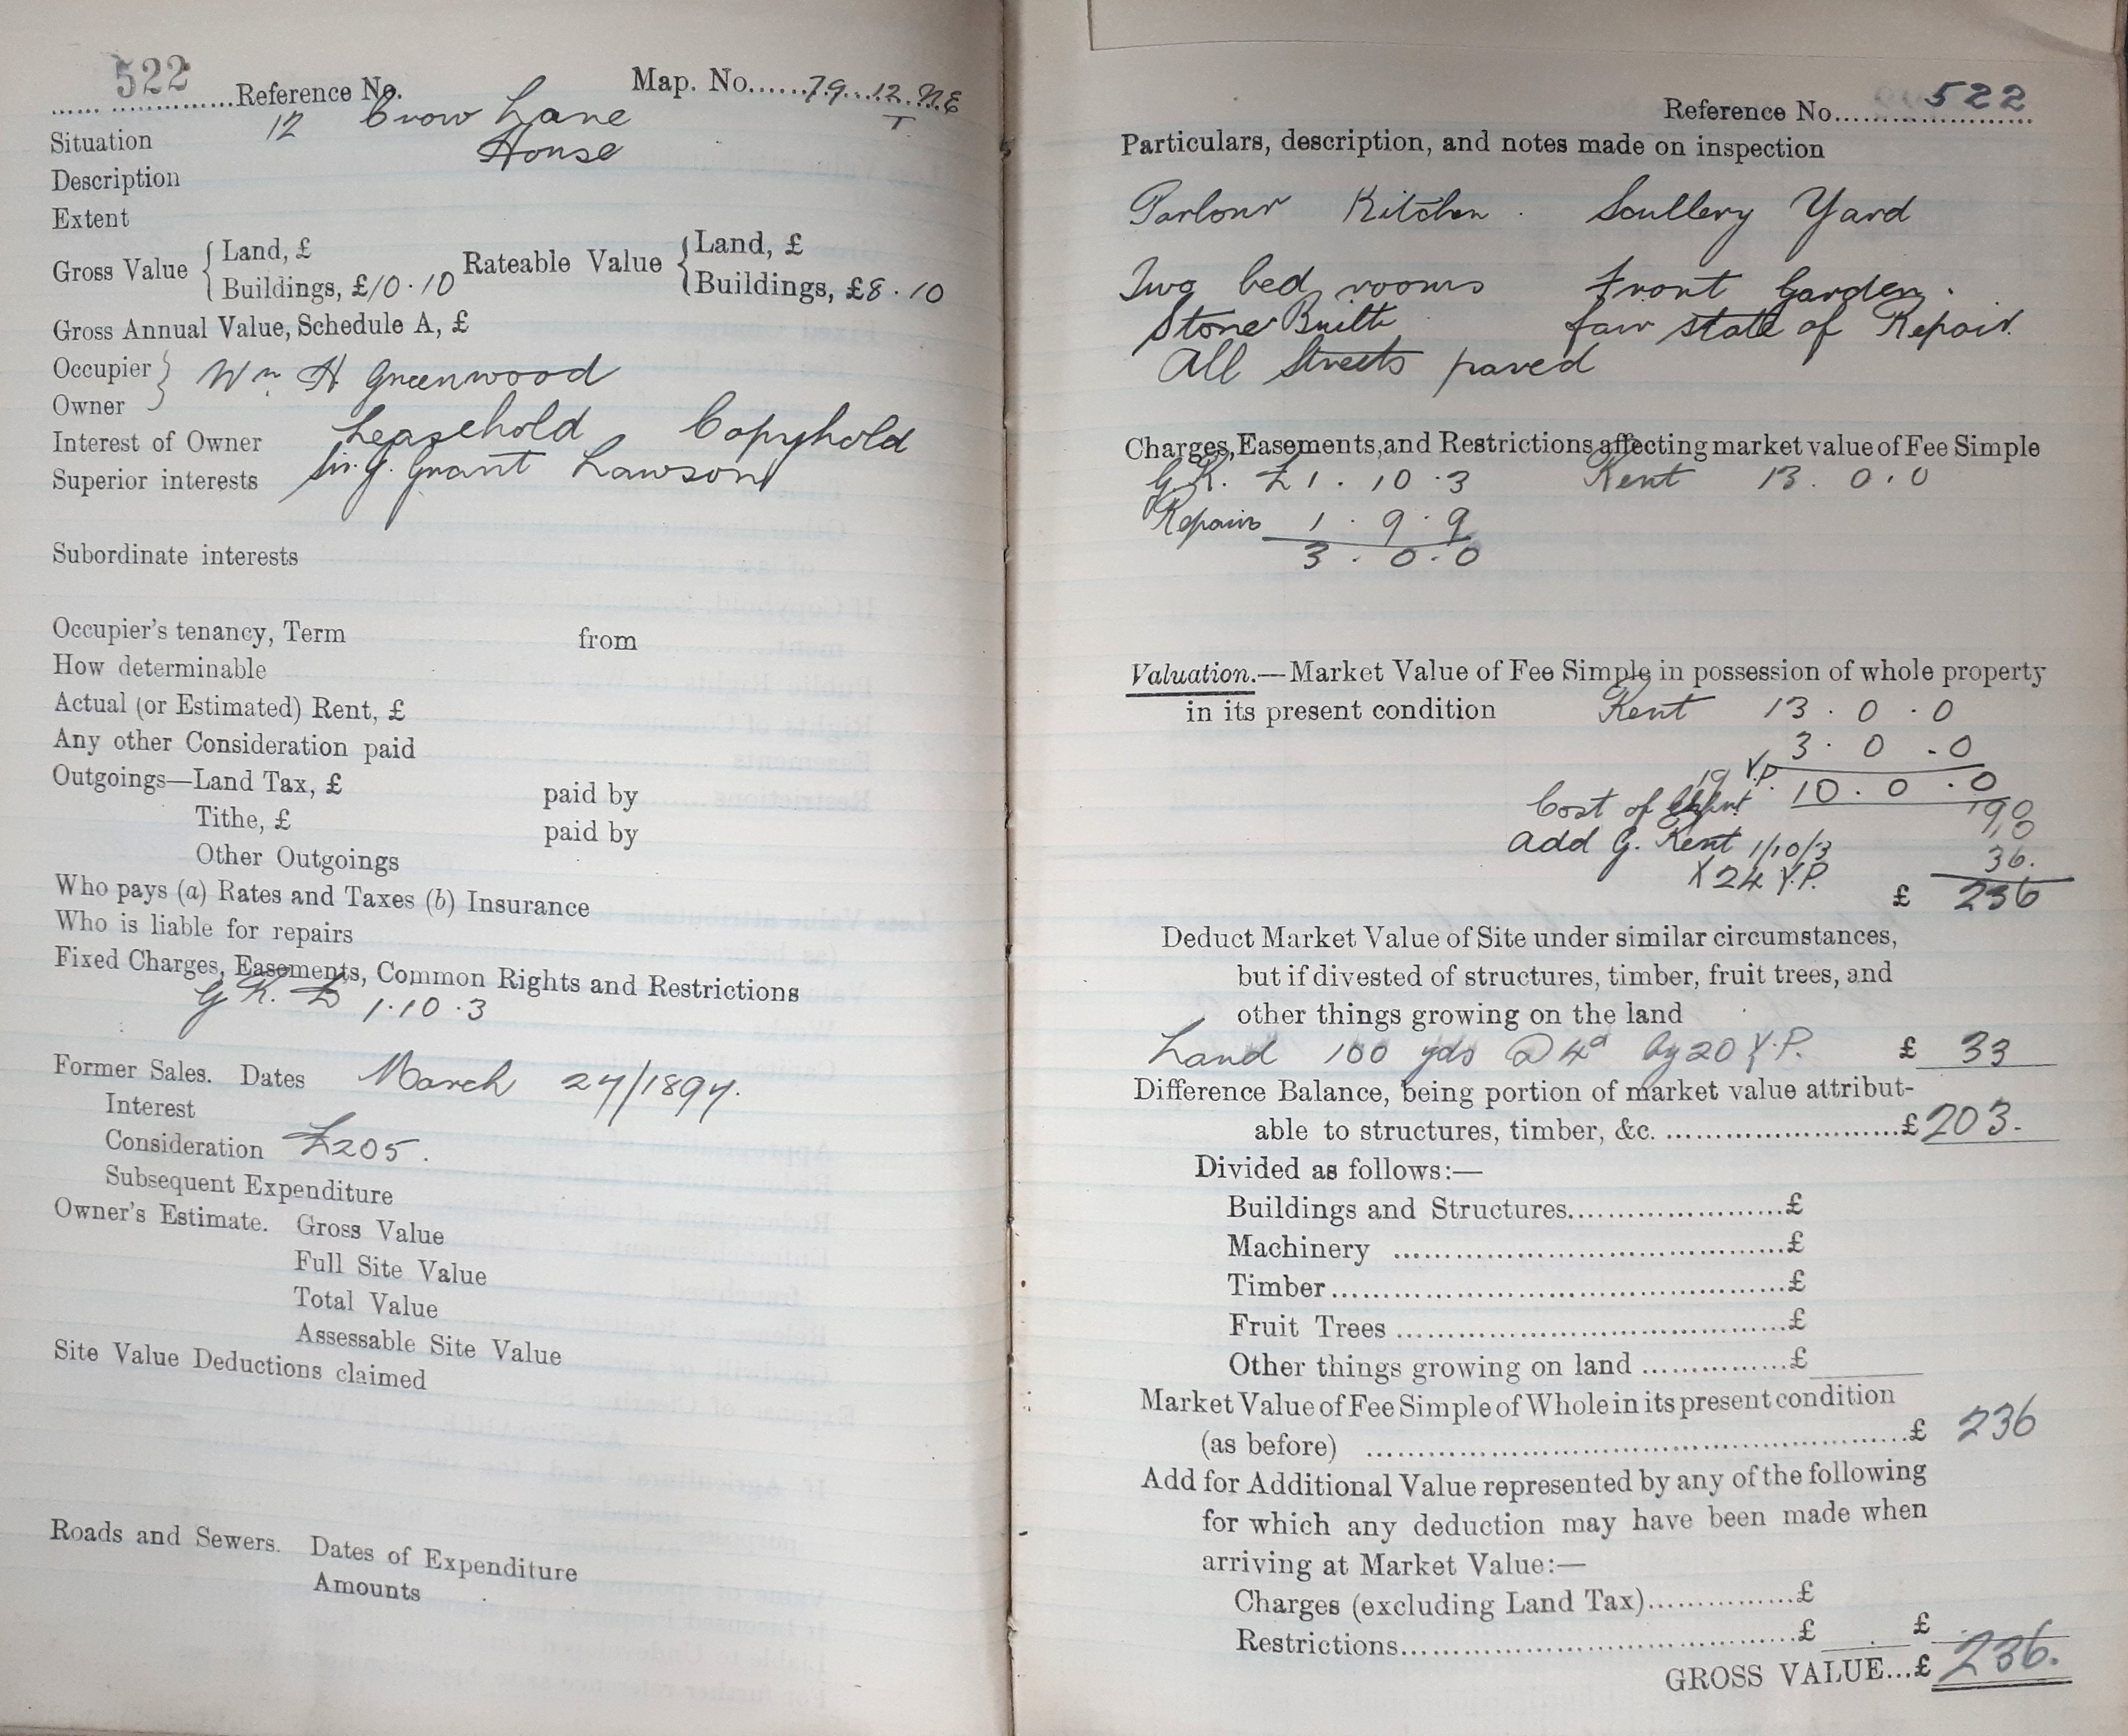 522 Reference No. Map. No. 79. 12. N.E
T.
Situation 12 Crow Lane
Description House
Extent
Gross Value { Land, £ Rateable Value { Land, £
Buildings, £10.10 Buildings, £8.10
Gross Annual Value, Schedule A, £
Occupier } Wm H Greenwood
Owner
Interest of Owner Leasehold Copyhold
Superior interests Sir. J. Grant Lawson
Subordinate interests
Occupier's tenancy, Term from
How determinable
Actual (or Estimated) Rent, £
Any other Consideration paid
Outgoings—Land Tax, £ paid by
Tithe, £ paid by
Other Outgoings
Who pays (a) Rates and Taxes (b) Insurance
Who is liable for repairs
Fixed Charges, Easements, Common Rights and Restrictions
G R. £ 1.10.3
Former Sales. Dates March 27/1897.
Interest
Consideration £205.
Subsequent Expenditure
Owner's Estimate. Gross Value
Full Site Value
Total Value
Assessable Site Value
Site Value Deductions claimed
Roads and Sewers. Dates of Expenditure
Amounts
Reference No. 522
Particulars, description, and notes made on inspection
Parlour Kitchen. Scullery Yard
Two bed rooms Front Garden.
Stone Built fair state of Repair.
All Streets paved
Charges, Easements, and Restrictions affecting market value of Fee Simple
G.R. £1.10.3 Rent 13.0.0
Repairs 1.9.9
3.0.0
Valuation.—Market Value of Fee Simple in possession of whole property
in its present condition Rent 13.0.0
3.0.0
19 Y.P. 10.0.0
190
Cost of 10
Add G. Rent 1/10/3 36.
X 24 Y.P.
£ 236
Deduct Market Value of Site under similar circumstances,
but if divested of structures, timber, fruit trees, and
other things growing on the land
Land 100 yds @ 4d by 20 Y.P. £ 33
Difference Balance, being portion of market value attribut-
able to structures, timber, &c. £203.
Divided as follows:—
Buildings and Structures £
Machinery £
Timber £
Fruit Trees £
Other things growing on land £
Market Value of Fee Simple of Whole in its present condition
(as before) £ 236
Add for Additional Value represented by any of the following
for which any deduction may have been made when
arriving at Market Value:—
Charges (excluding Land Tax) £
Restrictions £ £
GROSS VALUE...£ 236.